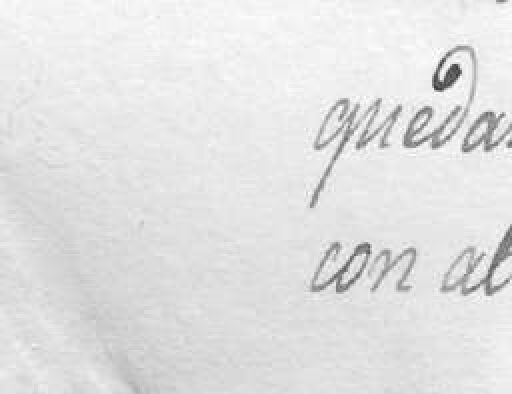 quedas
con al